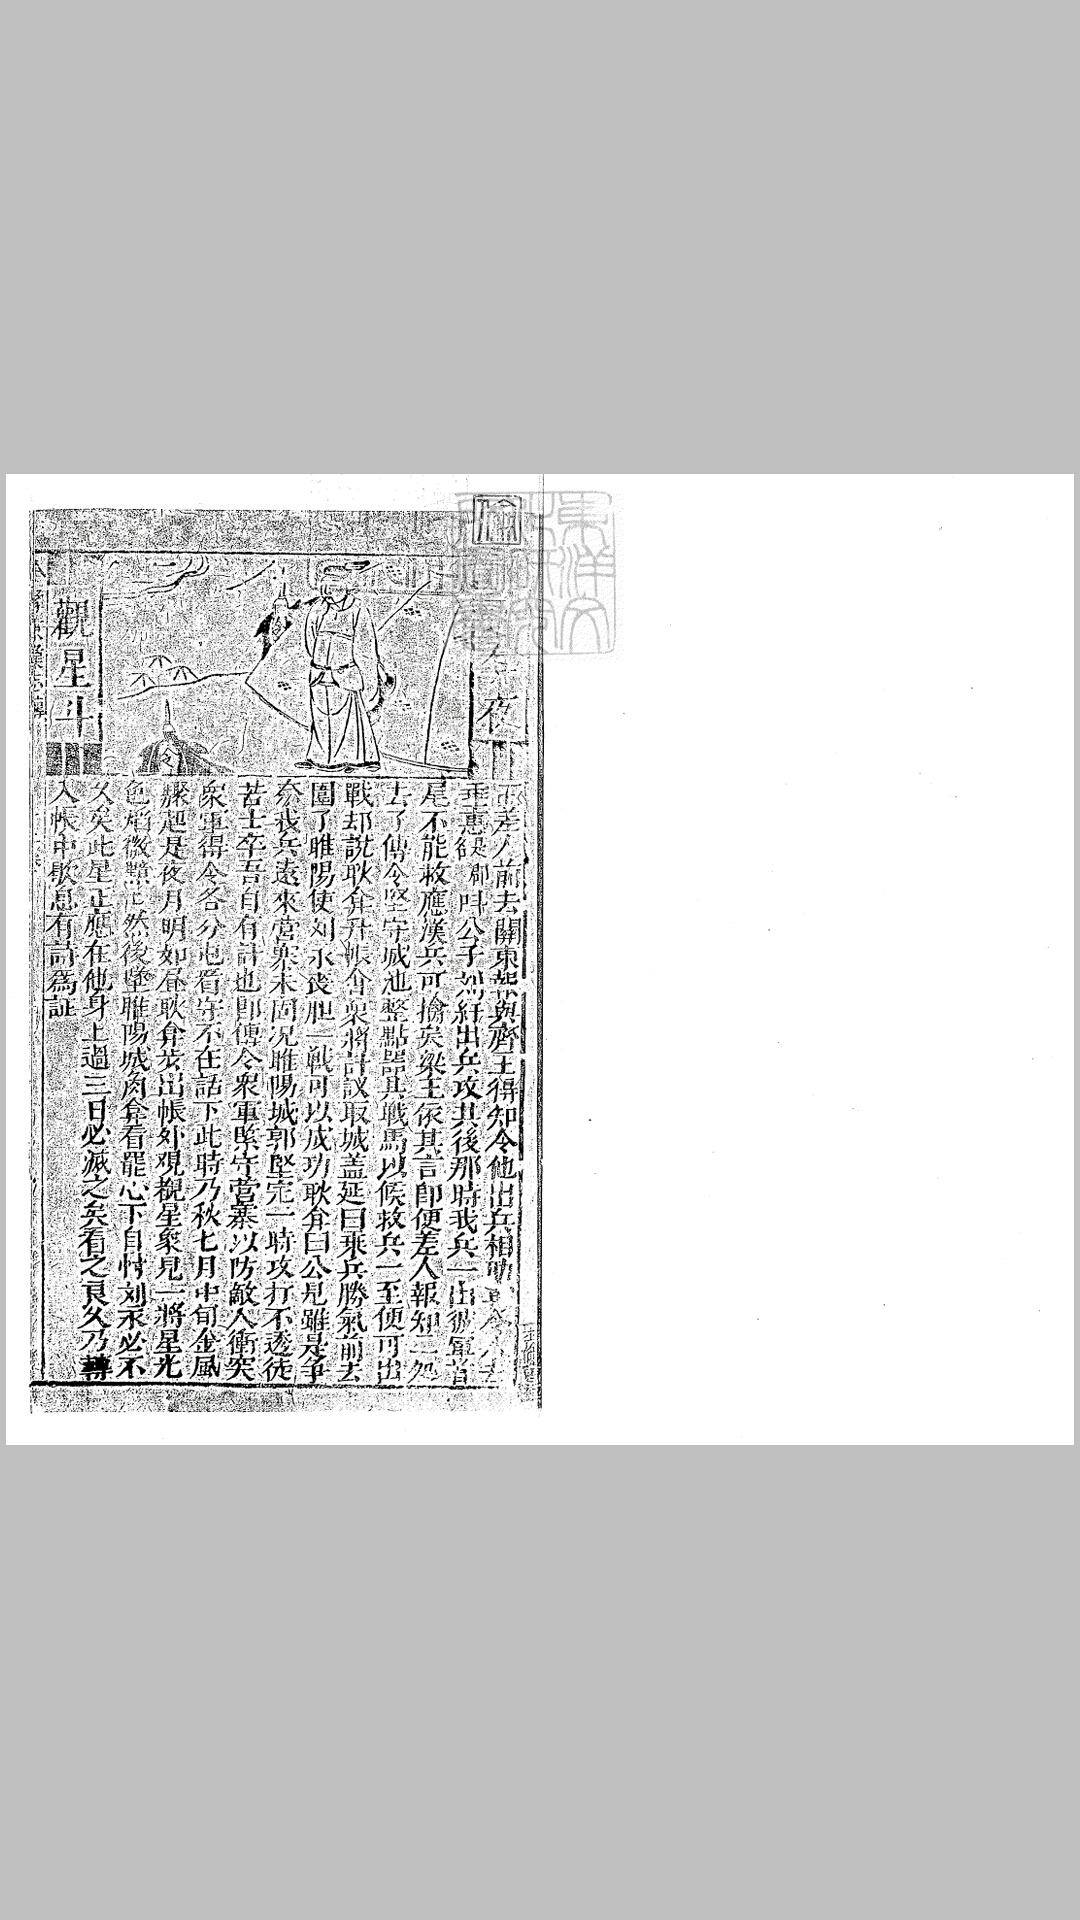 夜
觀星斗
差人前去關東報與齊王得知令他出兵相
垂惠叫公子刘紆出兵攻其後那時我兵一出彼軍首
尾不能救應漢兵可擒矣梁王依其言即便差人報知二処
去了傳令堅守城池整點噐具戰馬以候救兵一至便可出
戰却說耿弇升帳會衆將計議取城盖延曰乘兵勝氣前去
圍了睢陽使刘永丧胆一戰可以成功耿弇曰公見雖是争
奈我兵遠來營寨未固况睢陽城郭堅完一時攻打不透徒
苦士卒吾自有計也即傳令衆軍緊守營寨以防敵人衝突
衆軍得令各分屯看守不在話下此時乃秋七月中旬金風
驟起是夜月明如昼耿弇步出帳外观観星象見一將星光
色焰微黯然後墜睢陽城内弇看罷心下自忖刘永必不
久矣此星正應在他身上過三日必滅之矣看之良久乃轉
入帳中歇息有詩為証